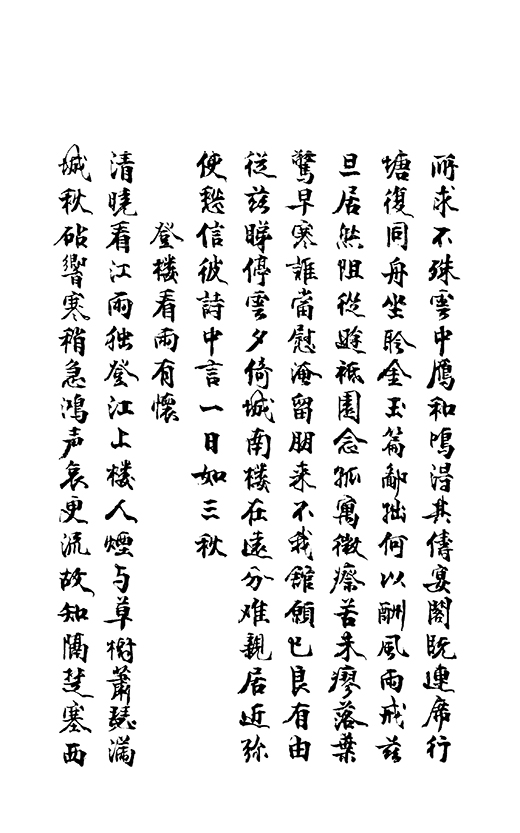 所求不殊雲中鴈和鳴得其儔宴閣既連席行
塘復同舟坐聆金玉篇鄙拙何以酬風雨戒茲
旦居然阻從遊祗園念孤寓微瘵苦未瘳落葉
驚早寒誰當慰淹留朋来不我館願已良有由
從茲睇停雲夕倚城南楼在遠分难親居近弥
使愁信彼詩中言一日如三秋
登楼看雨有懷
清曉看江雨独登江上楼人煙与草樹蕭瑟满
城秋砧響寒稍急鴻声哀更流故知隔楚塞西